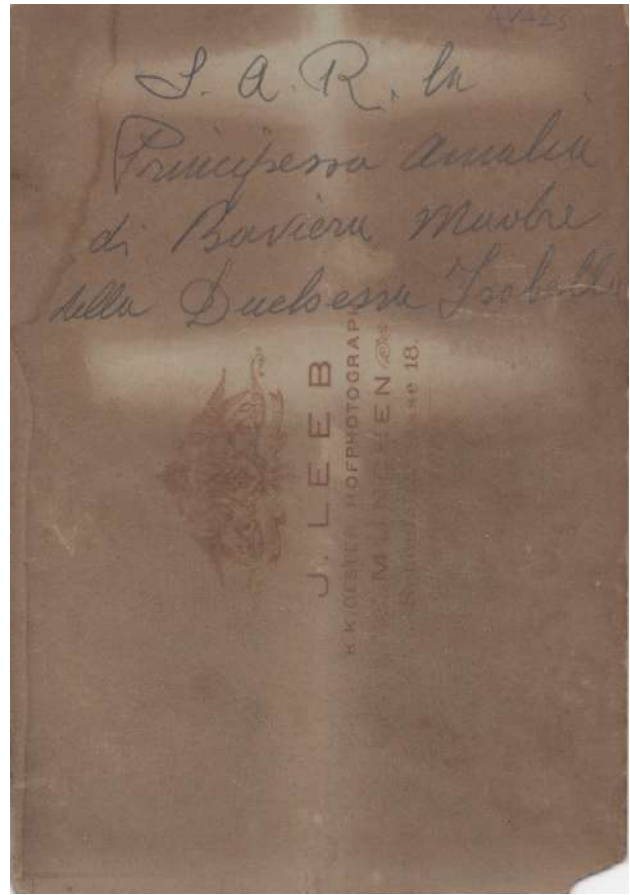 S. A. R. la
Principessa Amalia
di Baviera Madre
della Duchessa Isabella
J. LEEB
K.K. OESTER. HOFPHOTOGRAPH
MÜNCHEN
18.